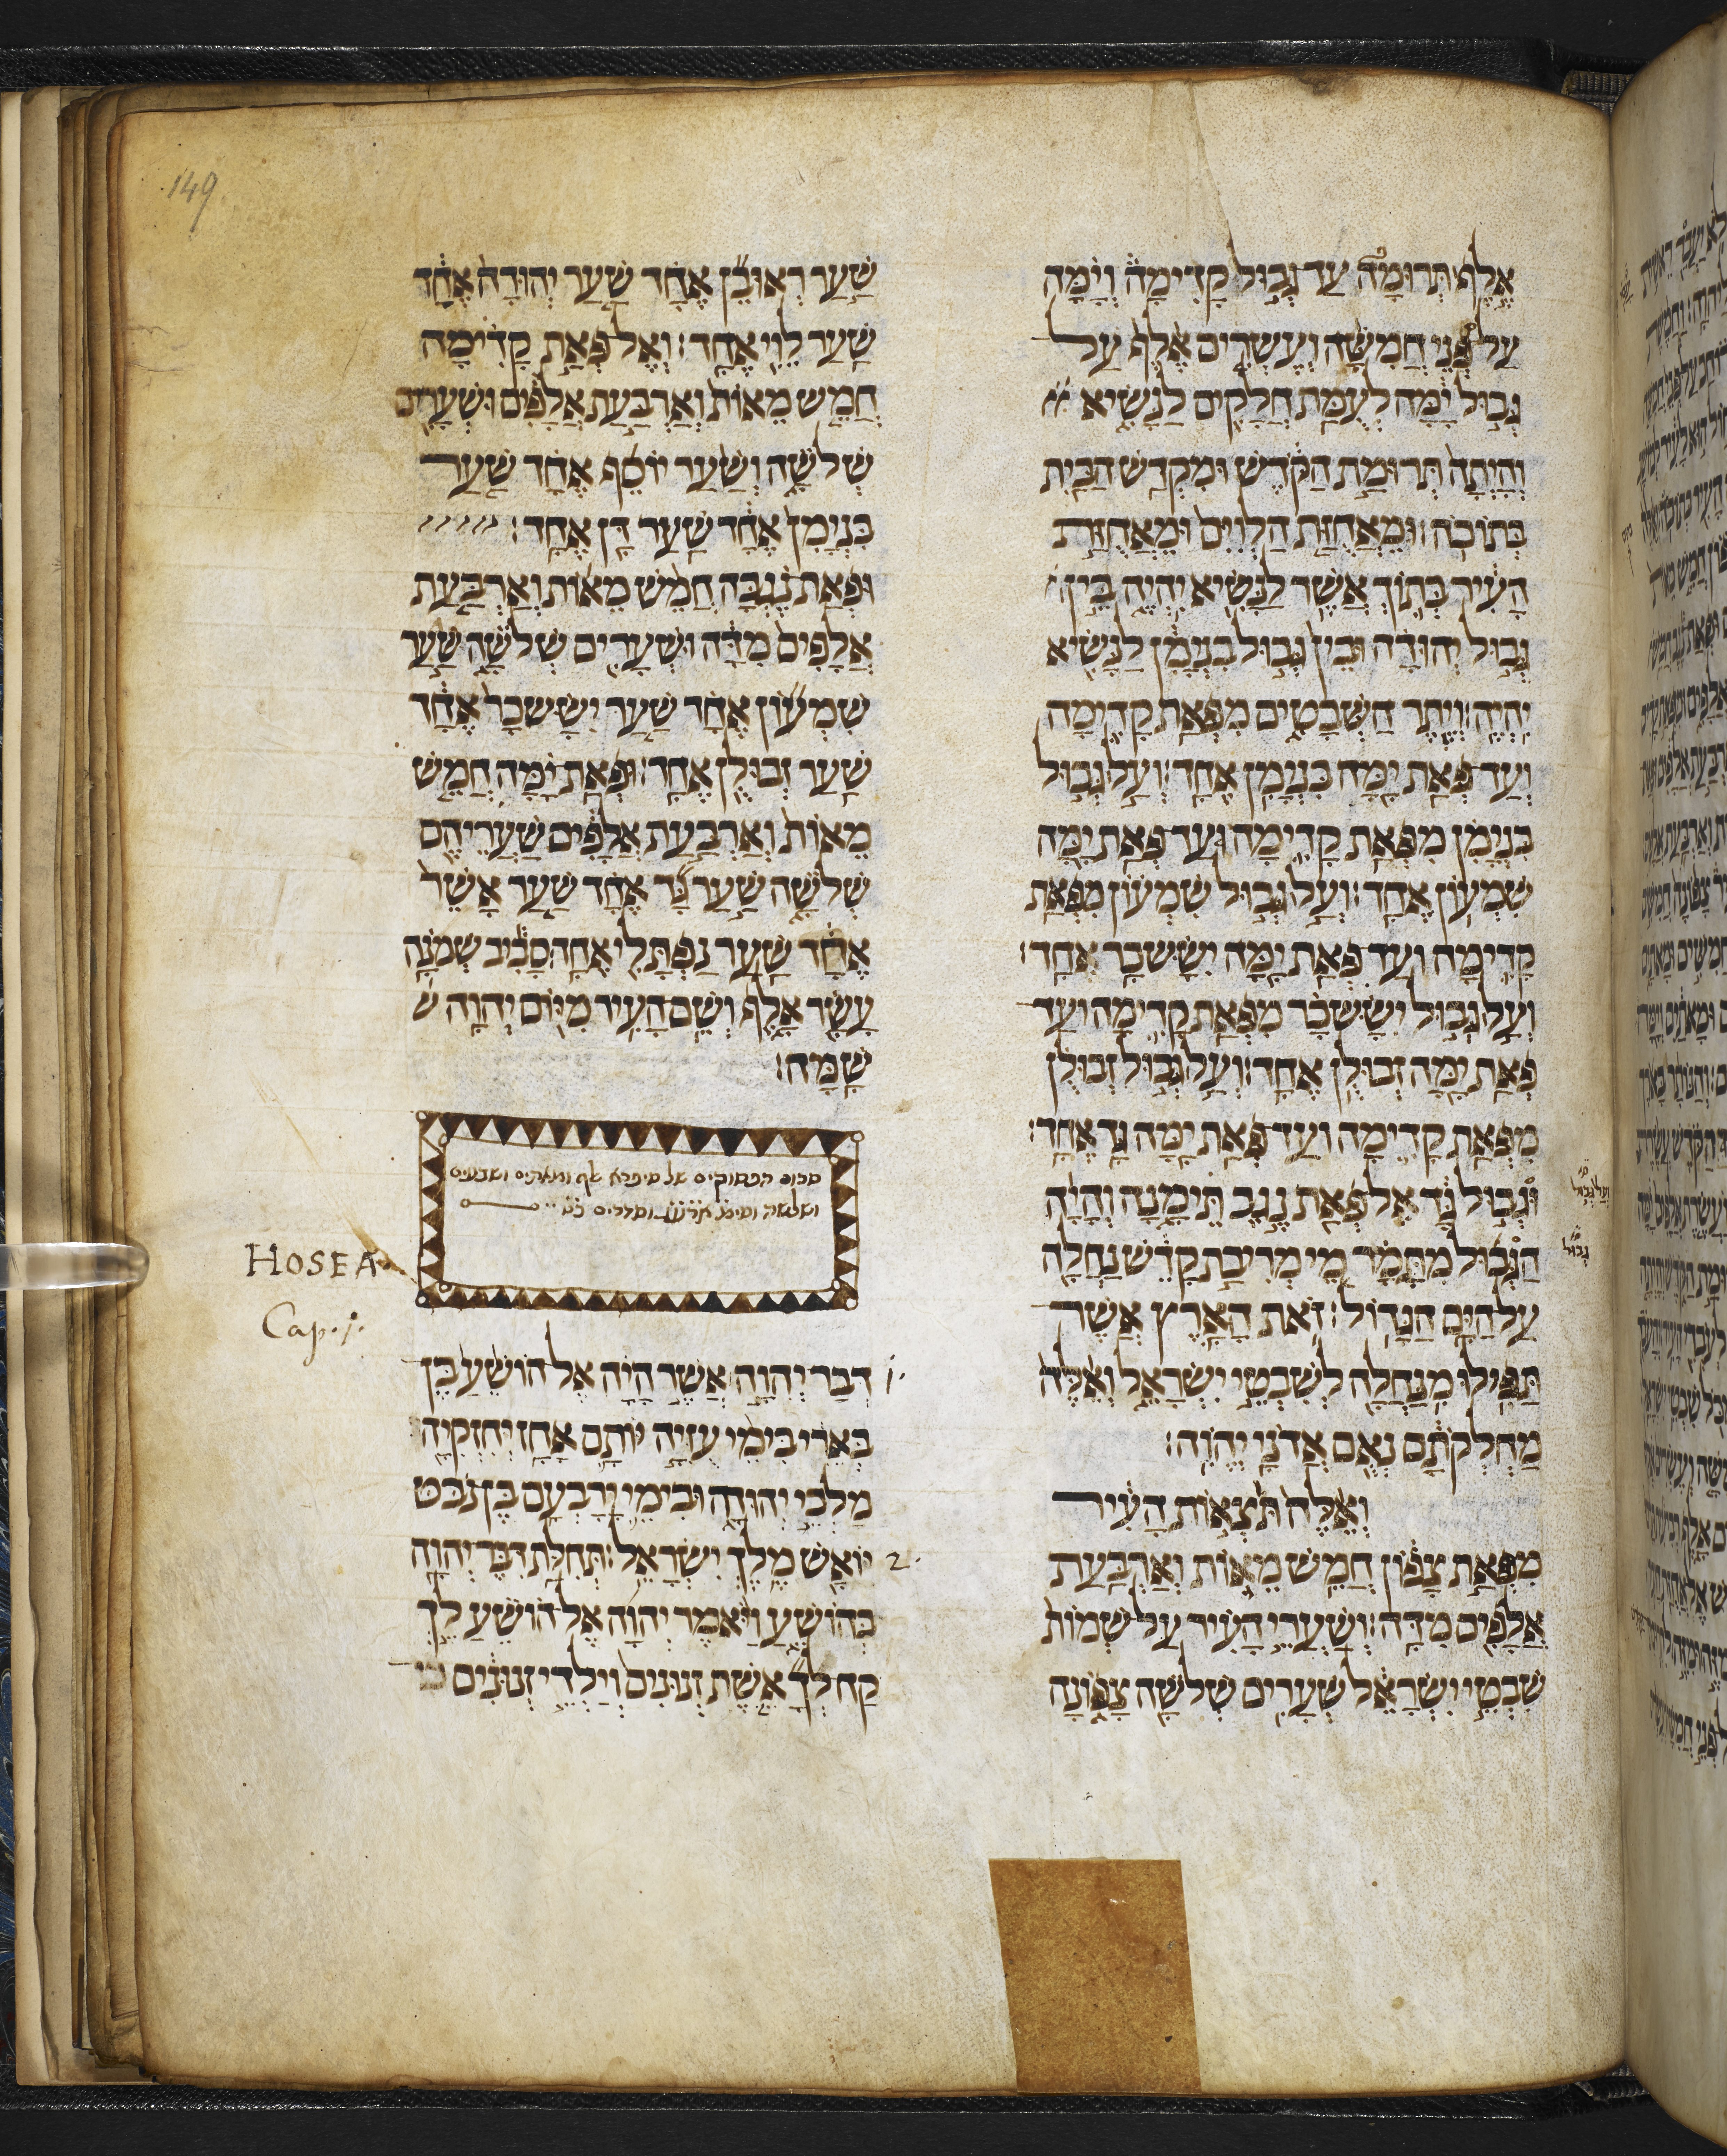 149
אלף תרומה עד גבול קדימה וימה
על פני חמשה ועשרים אלף על
גבול ימה לעמת חלקים לנשיא
והיתה תרומת הקדש ומקדש הבית
בתוכה׃ ומאחזת הלוים ומאחזת
העיר בתוך אשר לנשיא יהיה בין
גבול יהודה ובין גבול בנימן לנשיא
יהיה׃ ויתר השבטים מפאת קדימה
ועד פאת ימה בנימן אחד׃ ועל גבול
בנימן מפאת קדימה ועד פאת ימה
שמעון אחד׃ ועל גבול שמעון מפאת
קדימה ועד פאת ימה יששכר אחד׃
ועל גבול יששכר מפאת קדימה ועד
פאת ימה זבולן אחד׃ ועל גבול זבולן
מפאת קדימה ועד פאת ימה גד אחד׃
וגבול גד אל פאת נגב תימנה והיה
ועל גבול
הגבול מתמר מי מריבת קדש נחלה
גבול
על הים הגדול׃ זאת הארץ אשר
תפילו מנחלה לשבטי ישראל ואלה
מחלקתם נאם אדני יהוה׃
ואלה תצאות העיר
מפאת צפון חמש מאות וארבעת
אלפים מדה׃ ושערי העיר על שמות
שבטי ישראל שערים שלשה צפונה
שער ראובן אחד שער יהודה אחד
שער לוי אחד׃ ואל פאת קדימה
חמש מאות וארבעת אלפים ושערים
שלשה ושער יוסף אחד שער
בנימן אחד שער דן אחד׃
ופאת נגבה חמש מאות וארבעת
אלפים מדה ושערים שלשה שער
שמעון אחד שער יששכר אחד
שער זבולן אחד׃ ופאת ימה חמש
מאות וארבעת אלפים שעריהם
שלשה שער גד אחד שער אשר
אחד שער נפתלי אחד׃ סביב שמנה
עשר אלף ושם העיר מיום יהוה ש
שמה׃
סכום הפסוקים של סיפרא אלף ומאתים ושבעים
ושלשה וסימנ וסדרים כט
HOSEA
Cap. 1.
1. דבר יהוה אשר היה אל הושע בן
בארי בימי עזיה יותם אחז יחזקיה
מלכי יהודה ובימי ירבעם בן נבט
2. יואש מלך ישראל׃ תחלת דבר יהוה
בהושע ויאמר יהוה אל הושע לך
קח לך אשת זנונים וילדי זנונים כי